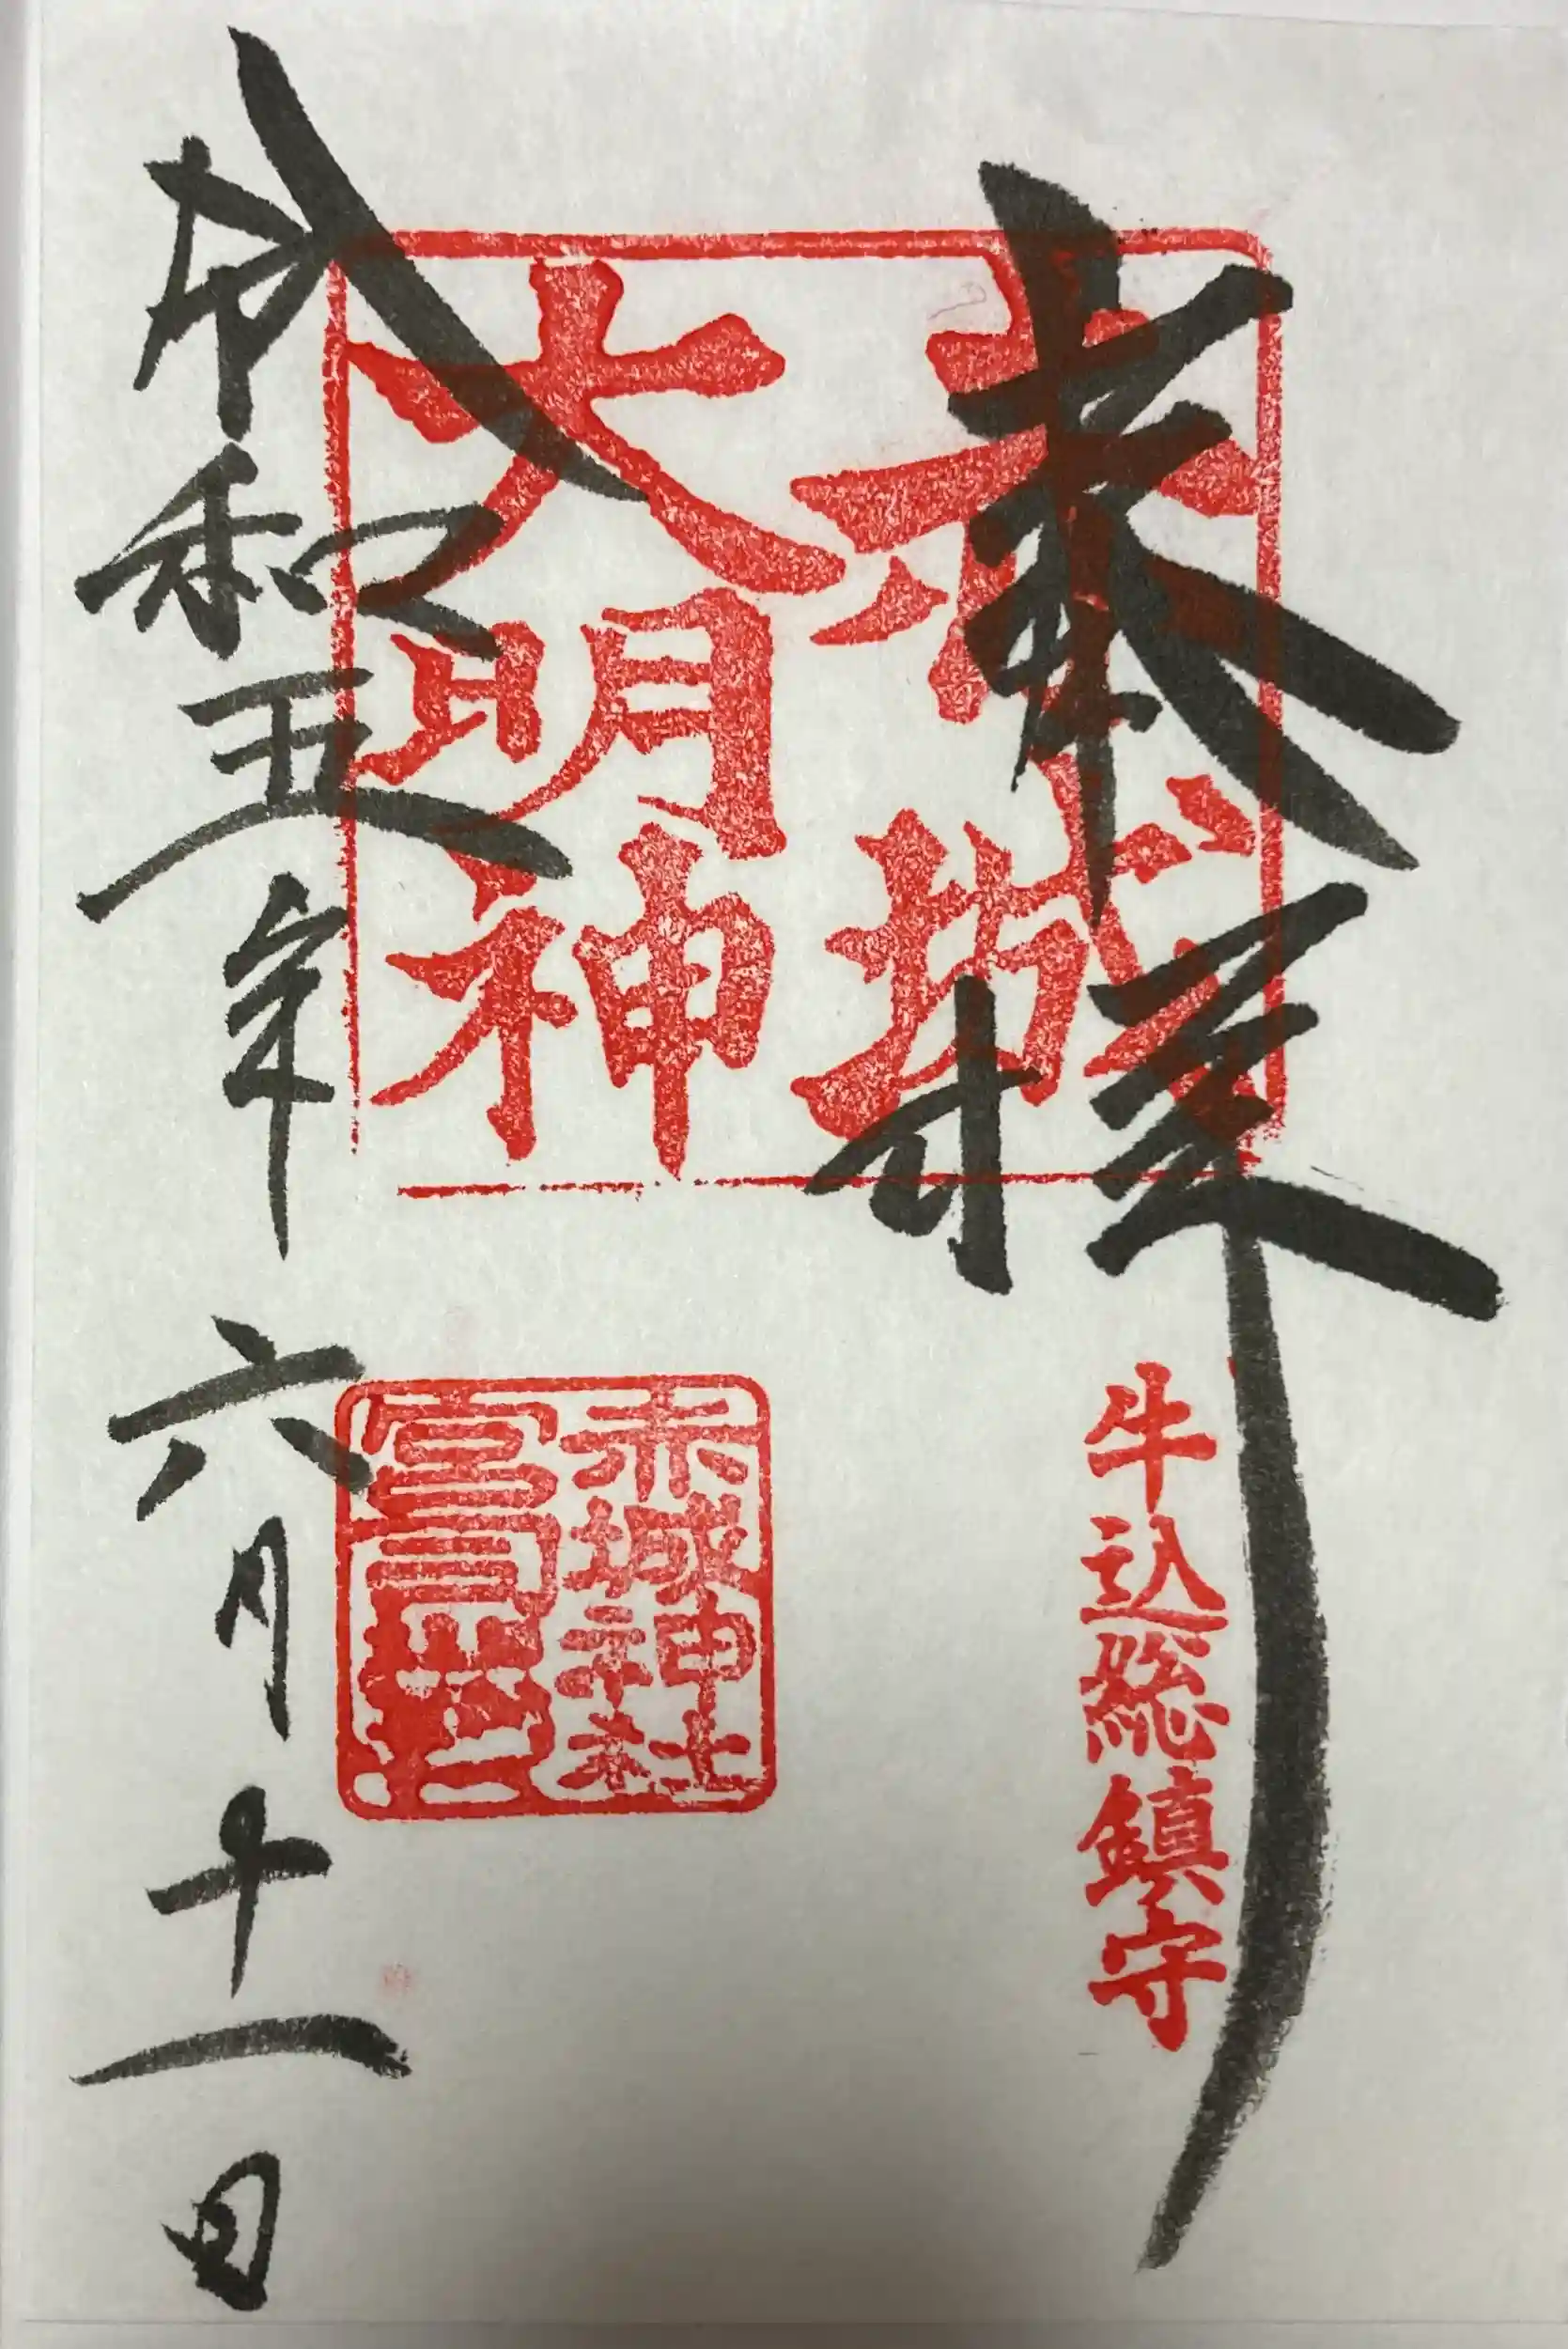 奉拝
牛込総鎮守
赤城
大明神
赤城神社
令和五年六月十一日